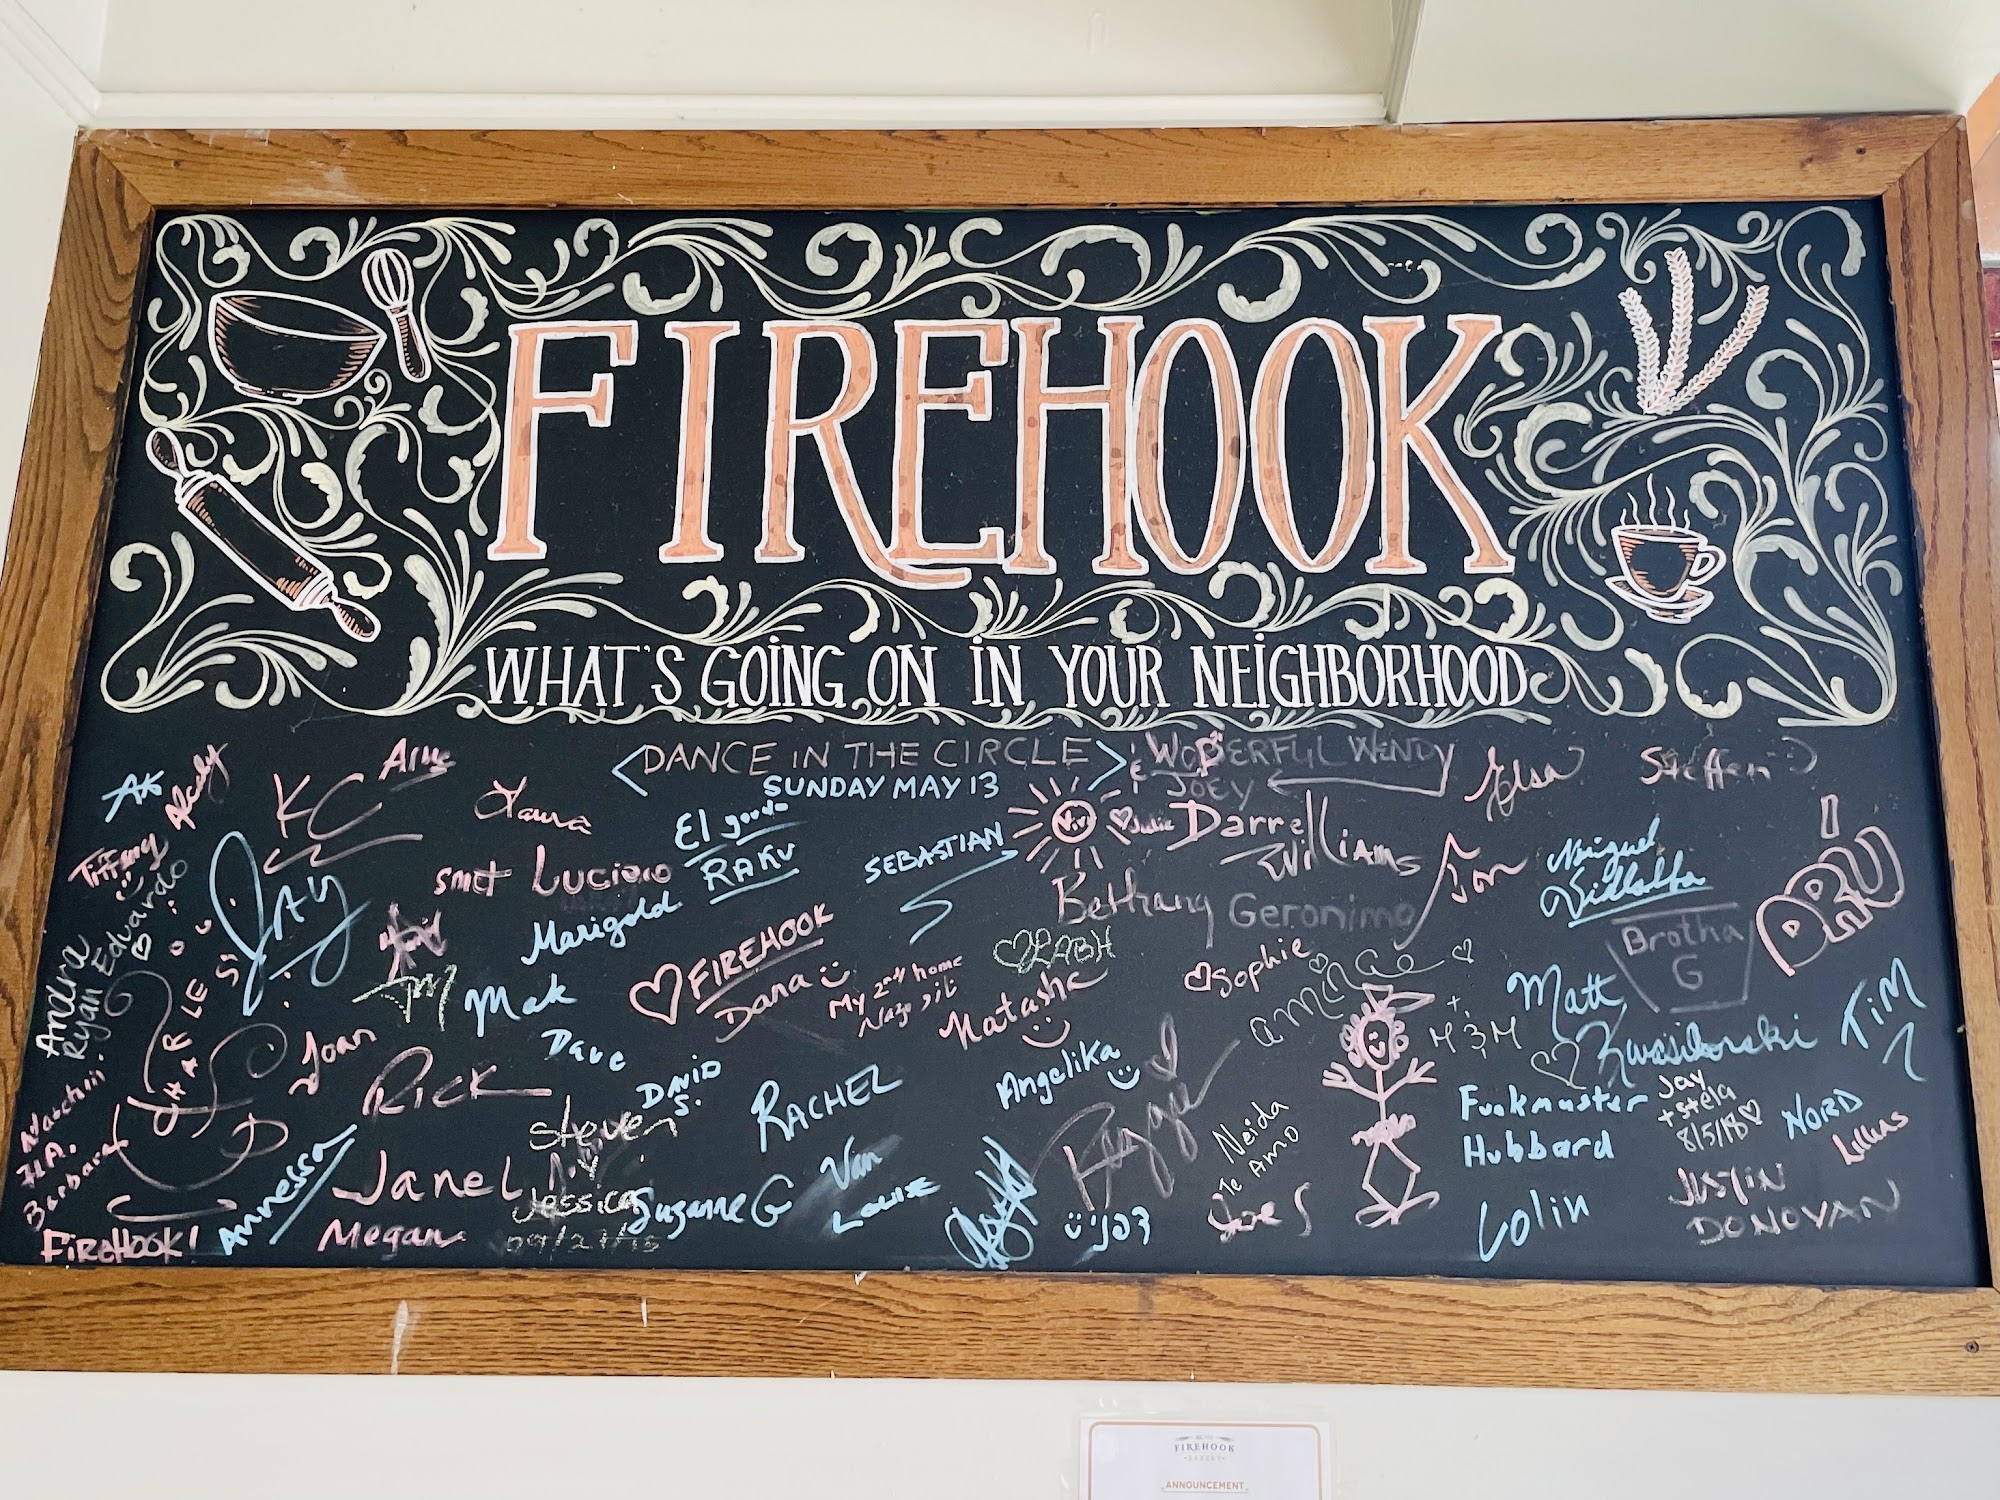 FIREHOOK
WHAT'S GOING ON IN YOUR NEIGHBORHOOD
<DANCE IN THE CIRCLE>
SUNDAY MAY 13
& WONDERFUL WENDY
JOEY
AK
KC
Laura
El gordo
RAKU
SEBASTIAN
Vivi
Julie
Darrell
Williams
Elsa
Steffen
Tiffany
Eduardo
JAY
smet
Luciano
Marigold
Bethany
Geronimo
Jon
Miguel
DRU
Brotha
G
Andra
Ryan
CHARLES
Mak
FIREHOOK
Dana
My 2nd home
LABH
Natasha
Sophie
aminae
Matt
Kwasiborski
TiM
Joan
Dave
DAVID
S.
Rick
RACHEL
Angelika
M&M
Funkmaster
Hubbard
Jay
+ Stela
8/5/18
NORD
Barbara
FIREHOOK!
Annessa
Janel
Megan
Steve
Jessica
Suzanne G
Van
Louise
Neida
Te Amo
Colin
JUSTIN
DONOVAN
FIREHOOK
BAKERY
ANNOUNCEMENT